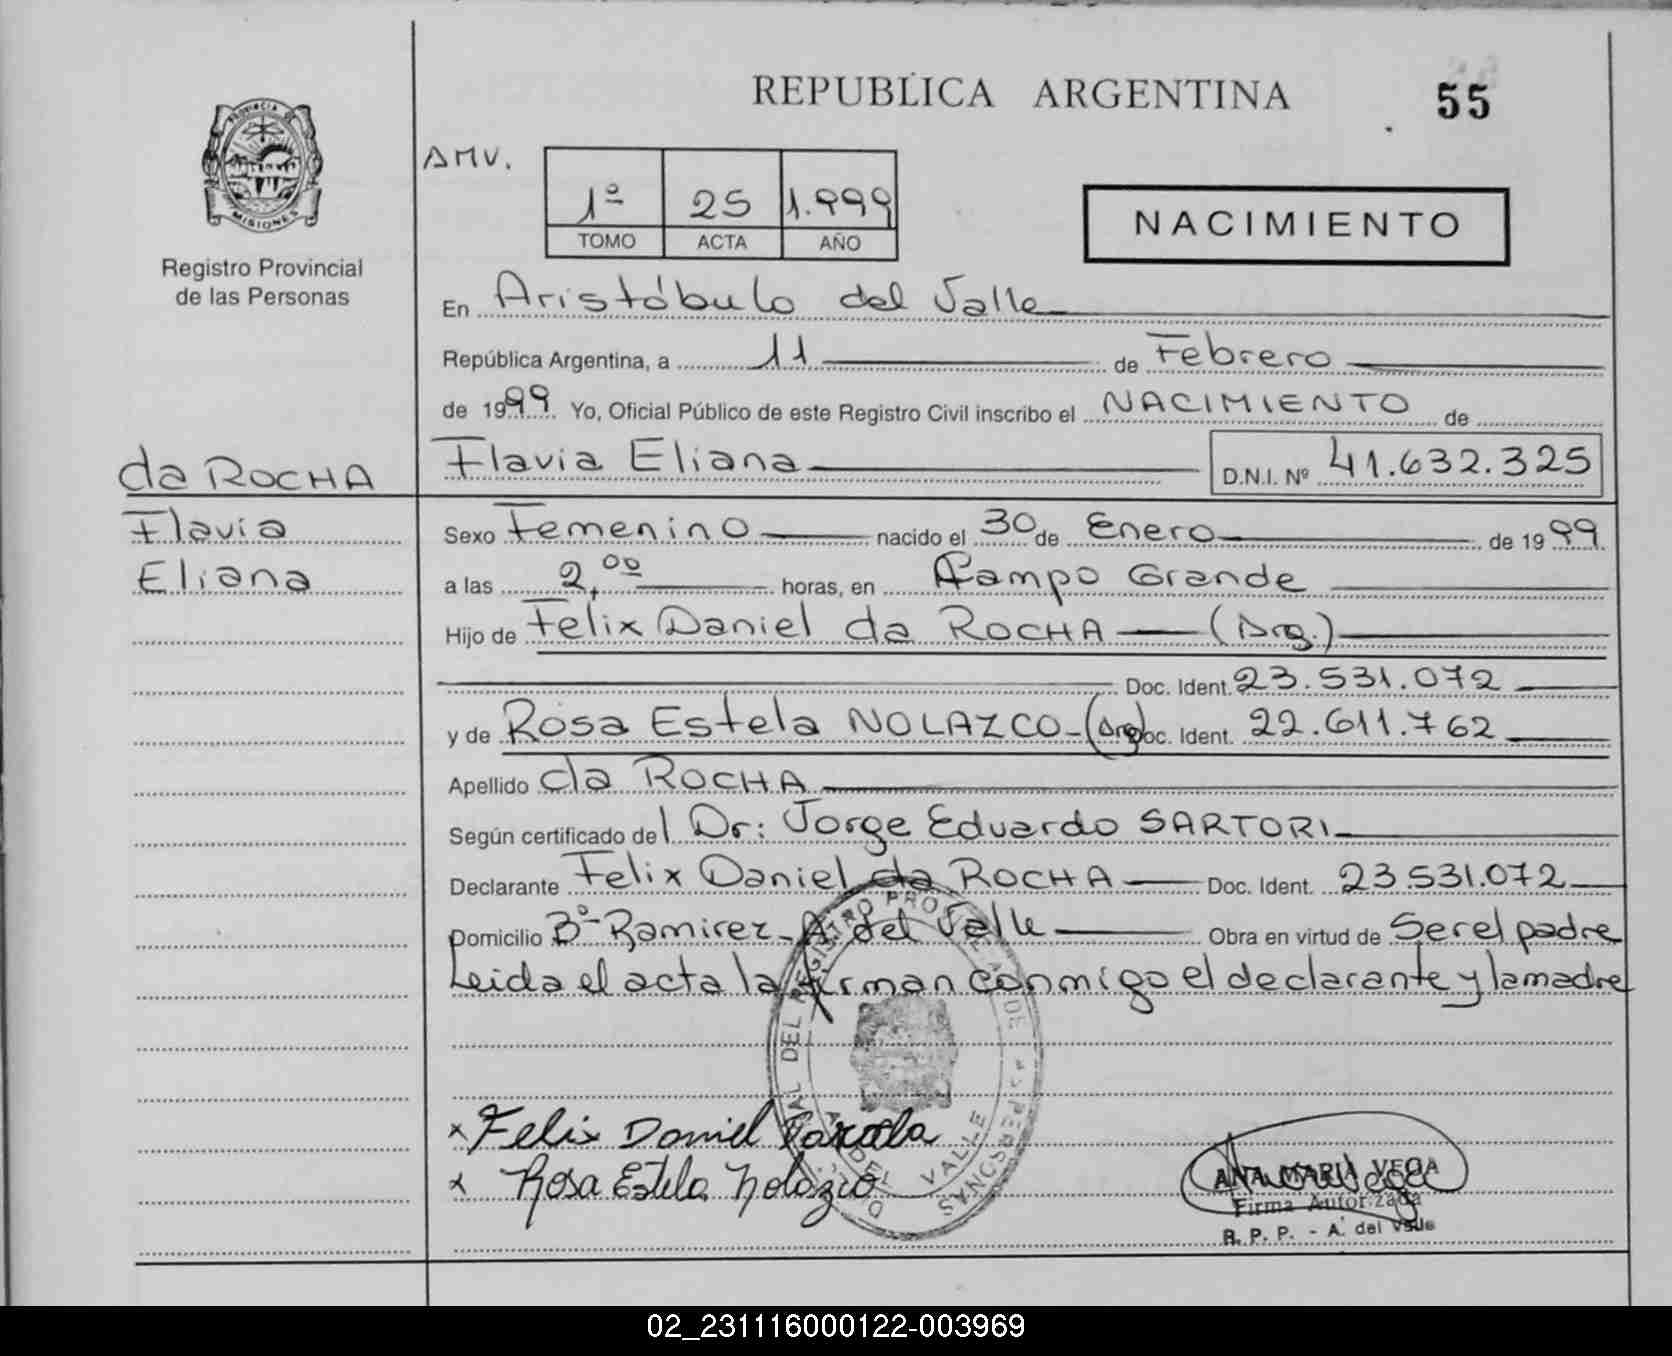 REPUBLICA ARGENTINA
55
PROVINCIA DE
MISIONES
Registro Provincial
de las Personas
AMV.
1º 25 1.999
TOMO ACTA AÑO
NACIMIENTO
En Aristóbulo del Valle
República Argentina, a 11 de Febrero
de 1999. Yo, Oficial Público de este Registro Civil inscribo el NACIMIENTO de
Flavia Eliana D.N.I. Nº 41.632.325
da ROCHA
Flavia
Eliana
Sexo Femenino nacido el 30 de Enero de 1999.
a las 2,00 horas, en Campo Grande
Hijo de Felix Daniel da ROCHA (Arg.)
Doc. Ident. 23.531.072
y de Rosa Estela NOLAZCO - (Arg) Doc. Ident. 22.611.762
Apellido da ROCHA
Según certificado del Dr: Jorge Eduardo SARTORI
Declarante Felix Daniel da ROCHA Doc. Ident. 23.531.072
Domicilio Bº Ramirez - A. del Valle Obra en virtud de Ser el padre
Leida el acta la firman conmigo el declarante y la madre
x Felix Daniel
x Rosa Estela Nolazco
ANA MARIA VEGA
Firma Autorizada
R. P. P. - A. del Valle
02_231116000122-003969